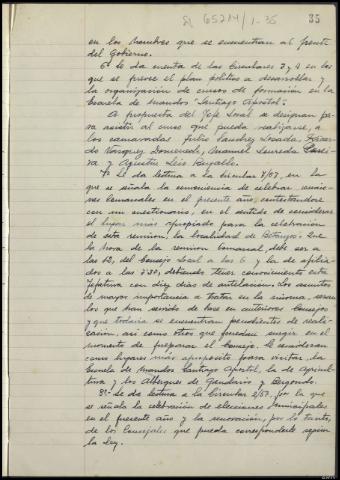 35
en los hombres que se encuentran al frente
del Gobierno.
6º Se da cuenta de las Circulares 3 y 4 en las
que se prevee el plan político a desarrollar y
la organización de cursos de formación en la
Escuela de Mandos "Santiago Apostol".
A propuesta del Jefe Local se designan pa-
ra asistir al curso que pueda realizarse, a
los camaradas Julio Sanchez Losada,
do Vazquez Domenech, Manuel Laureda
ra y Agustin Leis
7º Se da lectura a la Circular 7/67, en la
que se señala la conveniencia de celebrar reunio-
nes Comarcales en el presente año, contestandose
con un cuestionario, en el sentido de considerar
el lugar más apropiado para la celebración
de esta reunion, la localidad de Betanzos. Que
la hora de la reunion Comarcal, debe ser a
las 12, del Consejo Local a las 6 y la de afilia-
dos a las 7'30, debiendo tener conocimiento esta
Jefatura con diez dias de antelación. Los asuntos
de mayor importancia a tratar en la misma, seran
los que han servido de base en anteriores Consejos
y que todavia se encuentran pendientes de reali-
zación, asi como otros que puedan surgir en el
momento de preparar el Consejo. Se consideran
como lugares más aproposito para visitar, la
Escuela de Mandos Santiago Apostol, la de Agricul-
tura y los Albergues de Gandario y Bergondo.
8º Se da lectura a la Circular 2/67, por la que
se señala la celebración de elecciones municipales
en el presente año y la renovación, por lo tanto,
de los Concejales que pueda corresponderle según
la Ley.